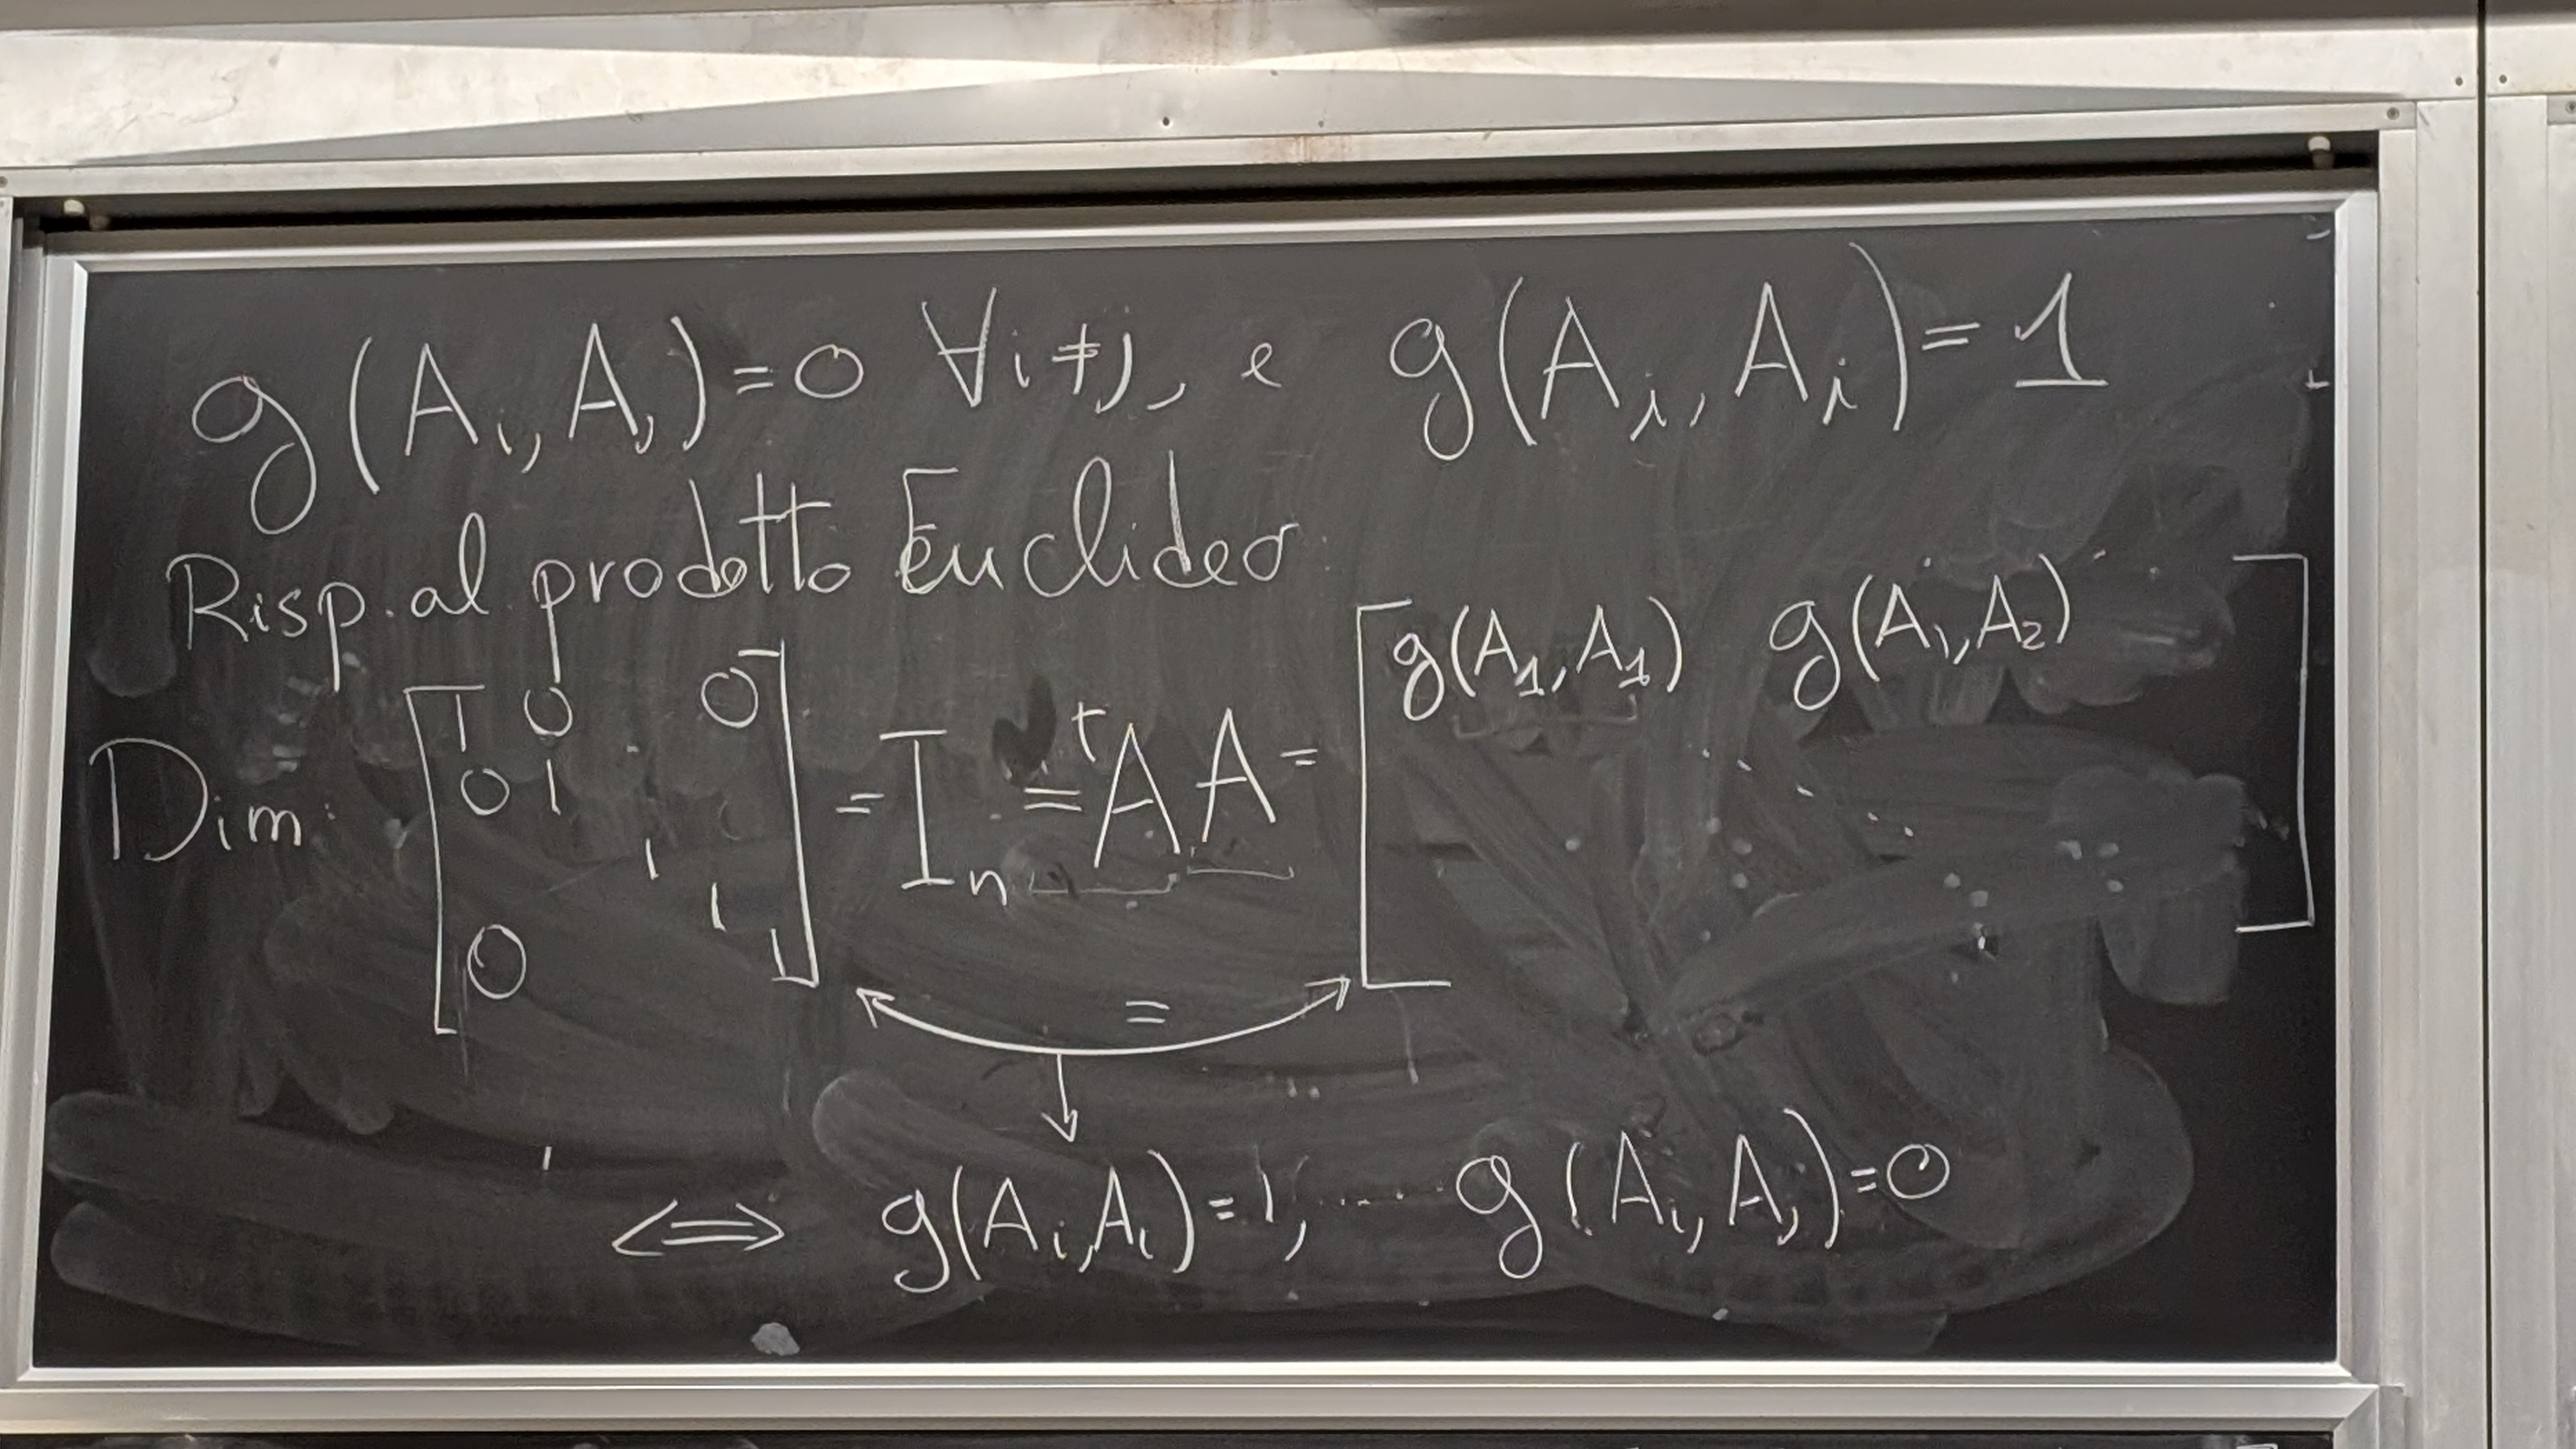 g(A_i, A_j) = 0 ∀ i ≠ j, e g(A_i, A_i) = 1
Risp. al prodotto Euclideo
Dim: [1 0 0
0 1
1
1
0 1] = I_n = ᵗA A = [g(A_1, A_1) g(A_1, A_2)
]
=
⟺ g(A_i, A_i) = 1, ...... g(A_i, A_j) = 0